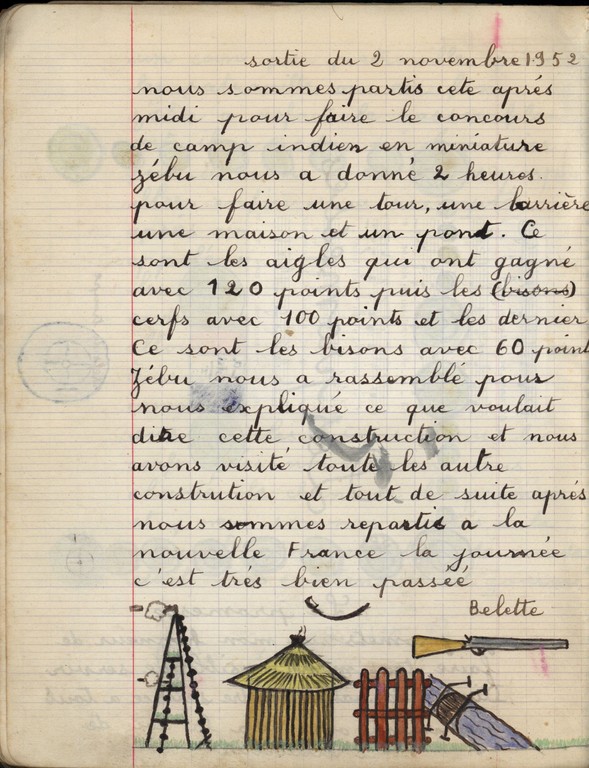 sortie du 2 novembre 1952
nous sommes partis cete aprés
midi pour faire le concours
de camp indien en miniature
zébu nous a donné 2 heures.
pour faire une tour, une barrière
une maison et un pont. Ce
sont les aigles qui ont gagné
avec 120 points puis les (bisons)
cerfs avec 100 points et les dernier
Ce sont les bisons avec 60 point
Zébu nous a rassemblé pour
nous expliqué ce que voulait
dire cette construction et nous
avons visité toute les autre
constrution et tout de suite aprés
nous sommes repartis a la
nouvelle France la journée
c'est trés bien passéé
Belette